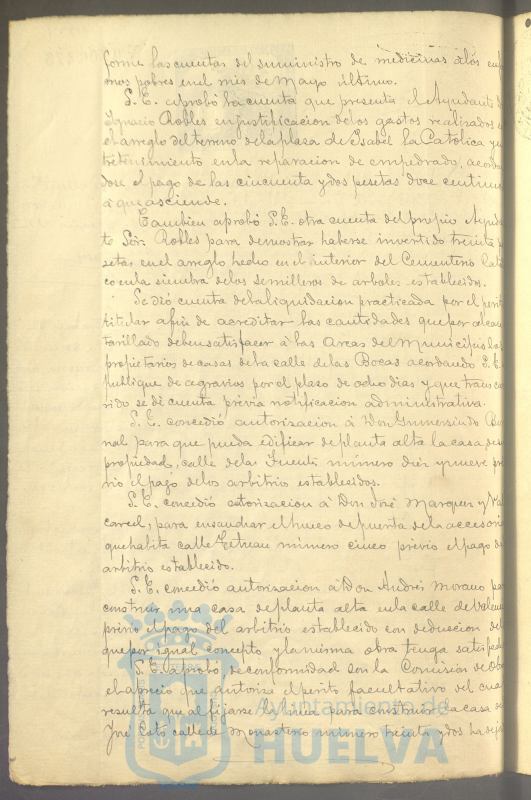 forme las cuentas del suministro de medicinas a los enfer
mos pobres en el mes de Mayo último.
S. E. aprobó la cuenta que presenta el Ayudante D.
Ignacio Robles en justificacion de los gastos realizados en
el arreglo del terreno de la plaza de Isabel la Catolica y en
tretenimiento en la reparacion de empedrado, acordan
dose el pago de las cincuenta y dos pesetas doce centimos
á que asciende.
Tambien aprobó S. E. otra cuenta del propio Ayudan
te Sór. Robles para demostrar haberse invertido treinta pe
setas en el arreglo hecho en el interior del Cementerio Cató
co en la siembra de los semilleros de arboles establecidos.
Se dió cuenta de la liquidacion practicada por el perito
titular a fin de acreditar las cantidades que por alcan
tarillado deben satisfacer á las Arcas del Municipio los
propietarios de casas de la calle de las Bocas acordando S. E.
publique de agravios por el plazo de ocho dias y que trans cu
rrido se dé cuenta previa notificacion administrativa.
S. E. concedió autorizacion á Don Gumersindo
nal para que pueda edificar de planta alta la casa, de su
propiedad, calle de la Fuente número diez y nueve pré
vio el pago de los arbitrio establecidos.
S. E. concedió autorizacion á Don José Marquez y
carcel, para ensanchar el hueco de puerta de la accesoria
que habita calle Tetuan número cinco previo el pago de
arbitrio establecido.
S. E. concedió autorizacion á Don Andrés Morano para
construir una casa de planta alta en la calle de
previo el pago del arbitrio establecido con deduccion del
que por igual concepto y la misma obra tenga satisfecho
S. E. aprobó, de conformidad con la Comision de Obras
el aprecio que autoriza el perito facultativo del cual
resulta que al fijarse la linea para construir la casa de
José calle de Monasterio número treinta y dos ha dejado
Ayuntamiento de
HUELVA